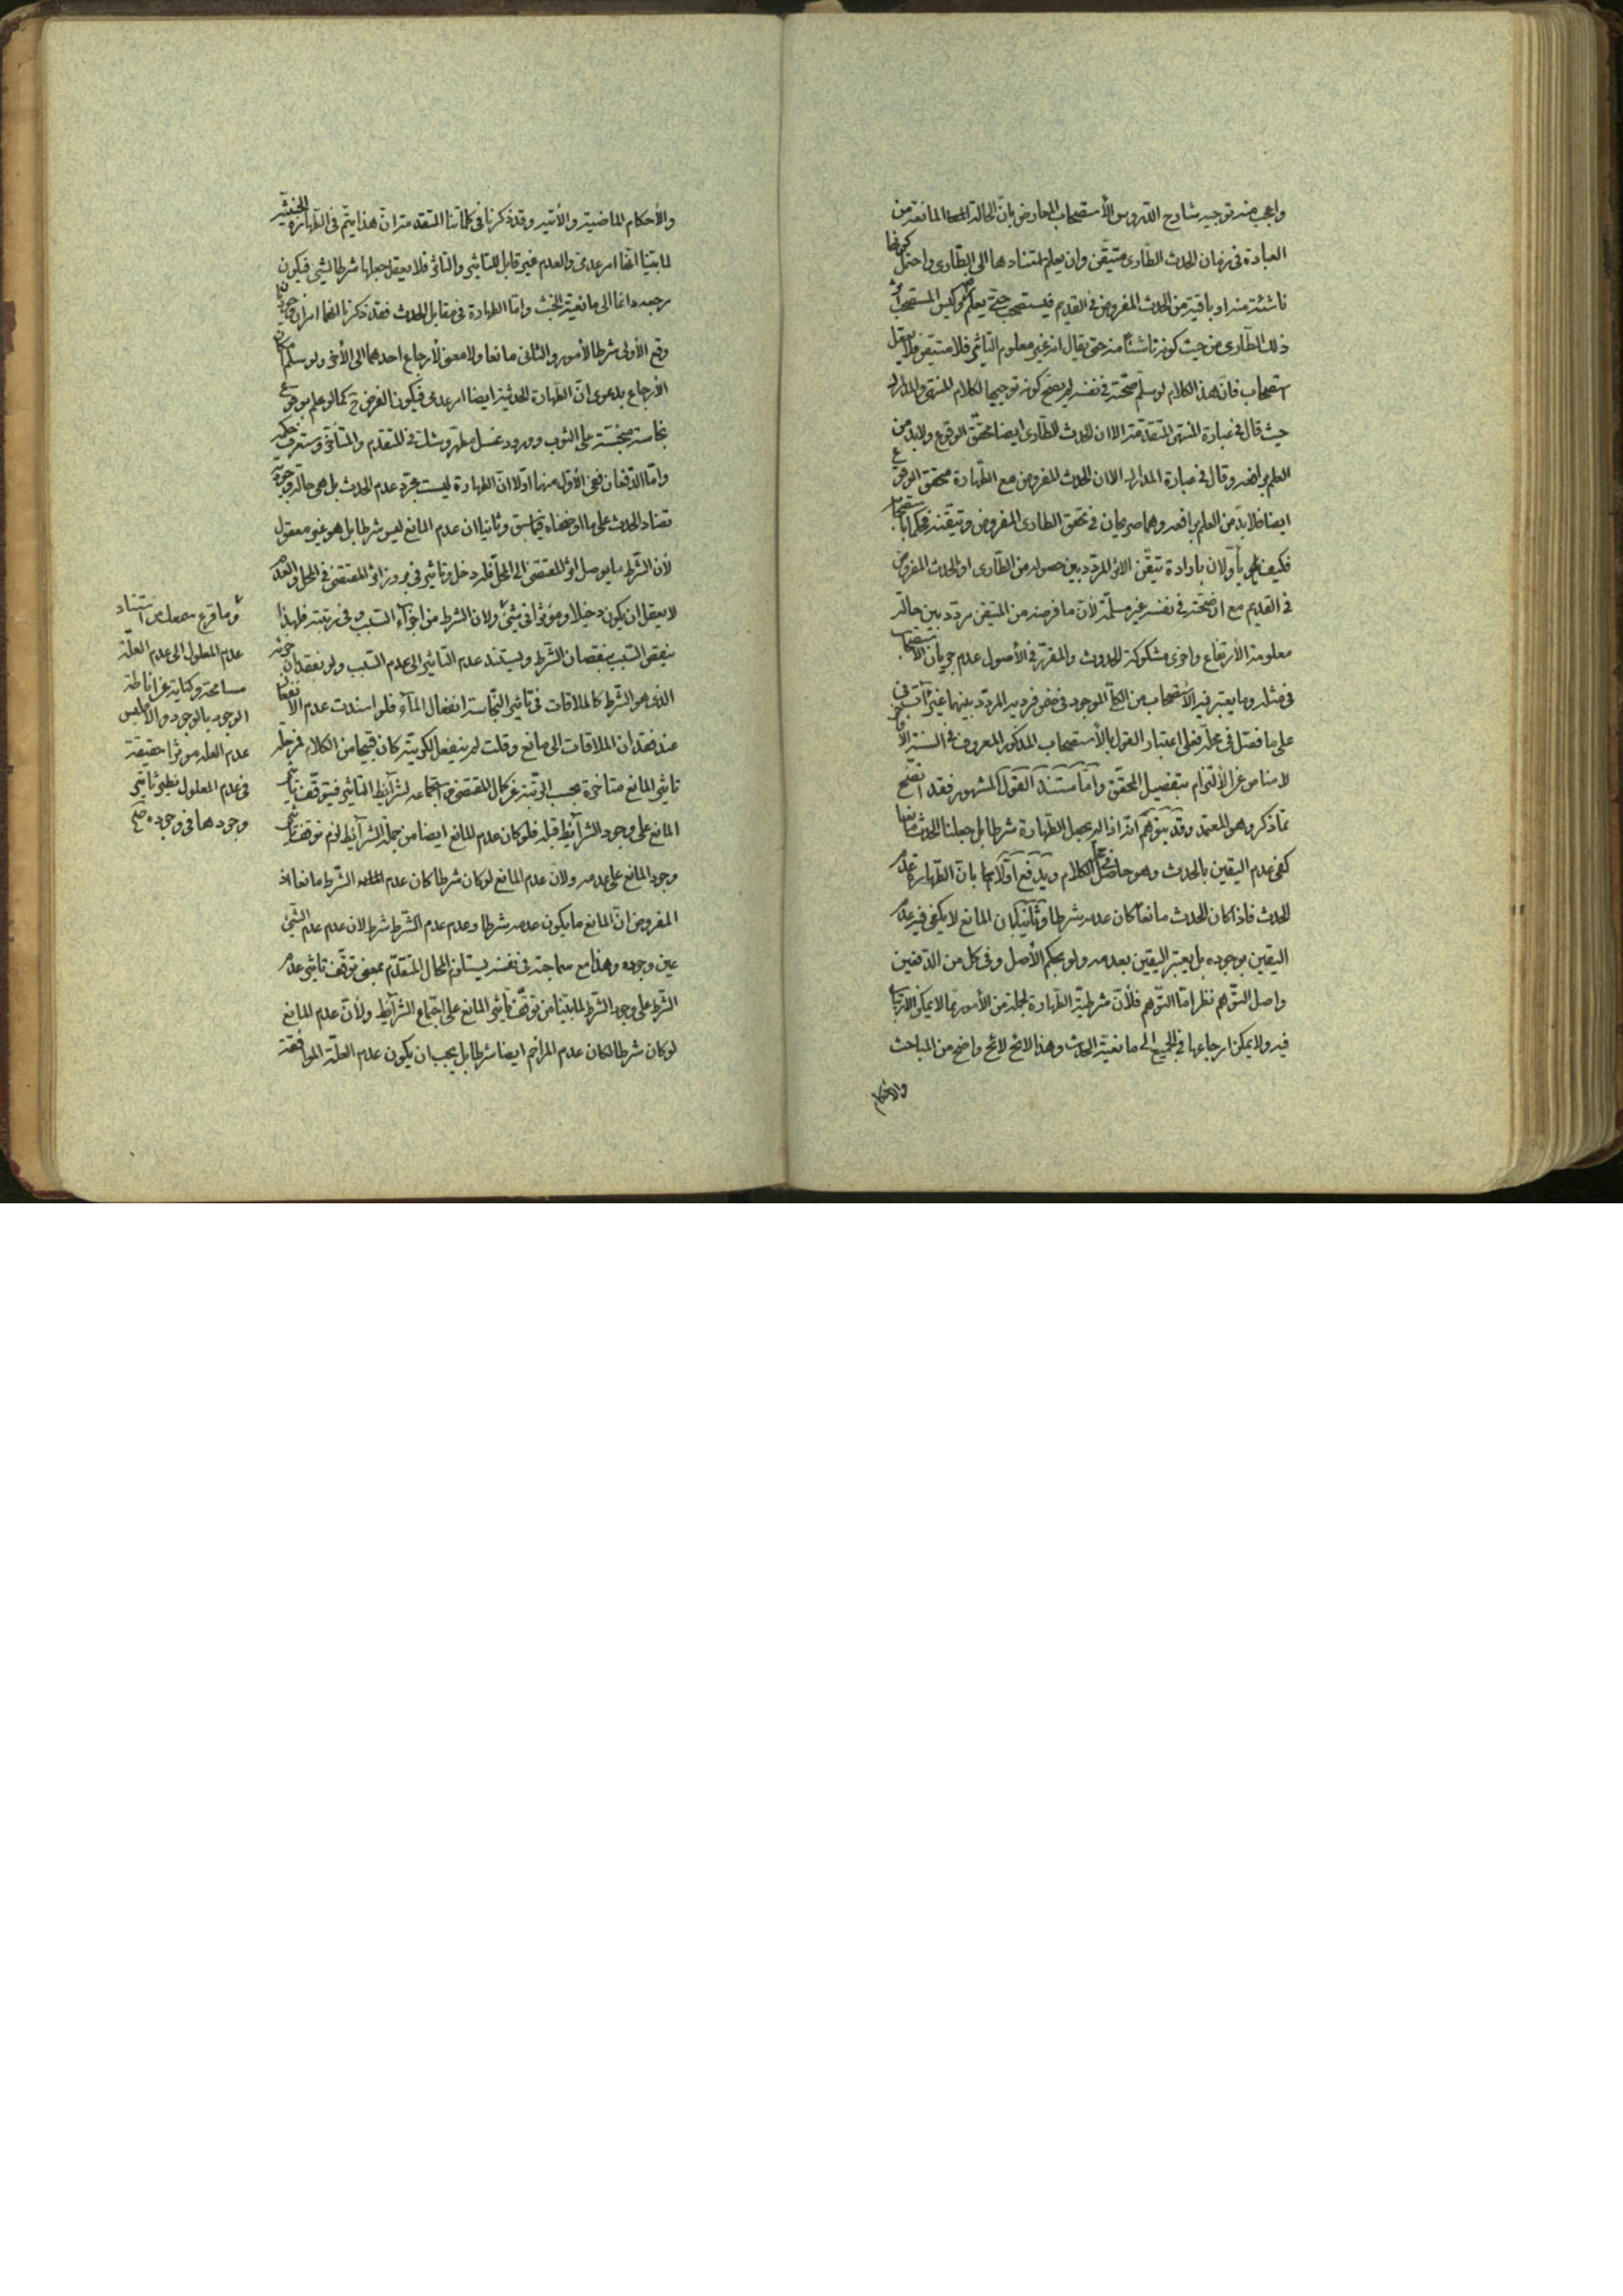 واعجب منه توجيه شارح الدروس الأستصحاب المعارض بان الحالة المانعة من
العبادة فى زمان الحدث الطارى متيقن وان يعلم استنادها الى الطارى واحتمل كونها
ناشئة منه او باقية من الحدث المفروض فى القديم فيستصحب حتى يعلم وليس المستصحب
ذلك الطارى من حيث كونه ناشئا منه حتى يقال انه غير معلوم التأثير فلا متيقن فلا يعقل
استصحاب فان هذا الكلام لو سلم صحّته فى نفسه لم يصح كونه توجيها لكلام المنتهى والمدارك
حيث قال فى عبارة المنتهى المتقدمة الا ان الحدث الطارى ايضا محقق الوقوع ولابد من
العلم برافعه وقال فى عبارة المدارك الا ان الحدث المفروض مع الطهارة متحقق الوقوع
ايضا فلا بد من العلم برافعه وهما صريحان فى تحقق الطارى المفروض وتيقنه
فكيف يأولان بارادة تيقن الاثر المردد بين حصوله من الطارى او الحدث المفروض
فى القديم مع ان صحّته فى نفسه غير مسلمة لأن ما فرضه من المتيقن مردد بين حالة
معلومة الأرتفاع واخرى مشكوكة الحدوث والمقرر فى الأصول عدم جريان الاستصحاب
فى مثله وما يعتبر فيه الأستصحاب من الكلى الموجود فى ضمن فرديه المردد بينهما غير
على ما فصّل فى محله فعلى اعتبار القول بالأستصحاب المذكور المعروف فى السنة
لا مناص عن الألتزام بتفصيل المحقق واما مستند القول المشهور فقد اتضح
مما ذكر وهو المعتمد وقد يتوهم انه اذا لم يجعل الطهارة شرطا بل جعلنا الحدث مانعا
كفى عدم اليقين بالحدث وهو حاصل الكلام ويدفع اولا بان الطهارة عدم
الحدث فاذا كان الحدث مانعا كان عدمه شرطا وثانيا بان المانع لا يكفى فيه عدم
اليقين بوجوده بل يعتبر اليقين بعدمه ولو بحكم الأصل وفى كل من الدفعين
واصل التوهم نظر اما التوهم فلأن شرطية الطهارة لجملة من الأمور مما لا يمكن الارتياب
فيه ولا يمكن ارجاعها فى الجميع الى مانعية الحدث وهذا لائح واضح من المباحث
والاحكام
والأحكام الماضية والأتية وقد ذكرنا فى كلماتنا المتقدمة ان هذا يتم فى الطهارة الخبثية
لما بينا انها امر عدمى والعدم غير قابل للتأثير والتأثر فلا يعقل جعلها شرطا لشئ فيكون
مرجعه دائما الى مانعية الخبث واما الطهارة فى مقابل الحدث فقد ذكرنا انهما امران وجوديان
وقع الأولى شرطا لأمور والثانى مانعا ولا معنى لأرجاع احدهما الى الأخر ولو سلم امكان
الأرجاع بدعوى ان الطهارة الحدثية ايضا امر عدمى فيكون الفرض ح كما لو علم بوقوع
نجاسة على الثوب وورود غسل مطهر وشك فى المتقدم والمتأخر وستعرف حكمه
واما الدفعان ففى الأول منهما اولا ان الطهارة ليست مجرد عدم الحدث بل هى حالة وجودية
تضاد الحدث على ما اوضحناه فيما سبق وثانيا ان عدم المانع ليس شرطا بل هو غير معقول
لأن الشرط ما يوصل اثر المقتضى الى المحل فله دخل وتأثير فى بروز اثر المقتضى فى المحل والعدم
لا يعقل ان يكون دخيلا ومؤثرا فى شئ ولان الشرط من اجزاء السبب وفى رتبته فلهذا
ينقص السبب بنقصان الشرط ويستند عدم التأثير الى عدم السبب ولو بفقدان جزئه
الذى هو الشرط كالملاقات فى تأثير النجاسة انفعال الماء فلو اسندت عدم الانفعال
عند فقدان الملاقات الى مانع وقلت لم ينفعل لكريته كان قبيحا من الكلام
تأثير المانع متأخرة بحسب الرتبة عن كمال المقتضى فى استجماعه لشرائط التأثير فيتوقف تأثير
المانع على وجود الشرائط قبله فلو كان عدم المانع ايضا من جملة الشرائط لزم توقف تأثير
وجود المانع على عدمه ولان عدم المانع لو كان شرطا كان عدم الشرط مانعا اذ
المفروض ان المانع ما يكون عدمه شرطا وعدم عدم الشرط شرط لان عدم عدم الشئ
عين وجوده وهذا مع سماجته فى نفسه يستلزم المحال المتقدم بمعنى توقف تأثير عدم
الشرط على وجود الشرط لما بينا من توقف تأثير المانع على اجتماع الشرائط ولأن عدم المانع
لو كان شرطا لكان عدم المزاحم ايضا شرطا بل يجب ان يكون عدم العلة الموافقة
وما قرع سمعك من استناد
عدم المعلول الى عدم العلة
مسامحة وكناية عن اناطة
الوجود بالوجود والا فليس
عدم العلة مؤثرا حقيقة
فى عدم المعلول نظير تأثير
وجودها فى وجوده صح